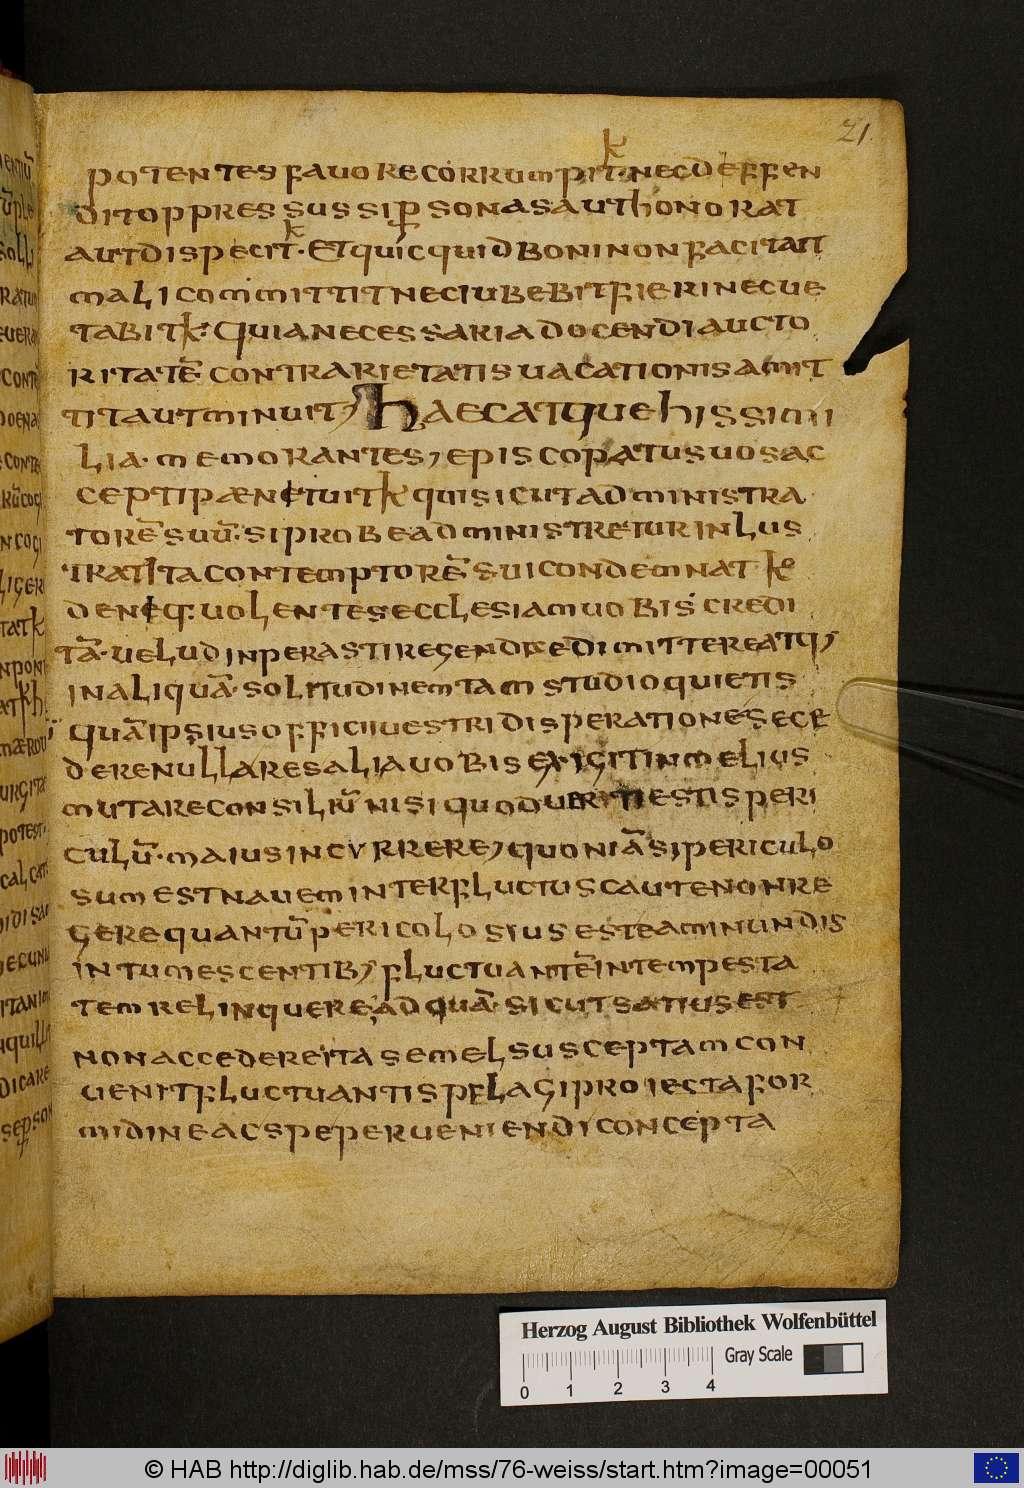 21.
potentes favore corrumpit · nec deffen
dit oppressus si p̱ sonas aut honorat
aut dispecit · Et quicquid boni non facit aut
mali committit nec iubebit fieri nec ue
tabit k Quia necessaria docendi aucto
ritatē contrarietatis uacationis amit
tit aut minuit, Haec atque his simi
lia · memorantes, episcopatus uos ac
cepti pænetuit k qui sicut administra
torē suū · si probe administretur inlus
trat Ita contemptorē sui condemnat k
deniq · uolentes ecclesiam uobis credi
tā · uelud inperasti regendae dimittere atq,
in aliquā · solitudinem tam studio quietis
quā ipsius officii uestri disperationes ece
dere nulla res alia uobis exigit in melius
mutare consiliū nisi quod uer estis peri
culū · maius incurrere, quoniā si, periculo
sum est nauem inter fluctus caute non re
gere quantū pericolosius est eam in undis
intumescentib, fluctuantē in tempesta
tem relinquere, ad quā · sicut satius est
non accedere ita semel susceptam con
uenit fluctuantis pelagi proiecta for
midine ac spe perueniendi concepta
Herzog August Bibliothek Wolfenbüttel
Gray Scale
0 1 2 3 4
© HAB http://diglib.hab.de/mss/76-weiss/start.htm?image=00051